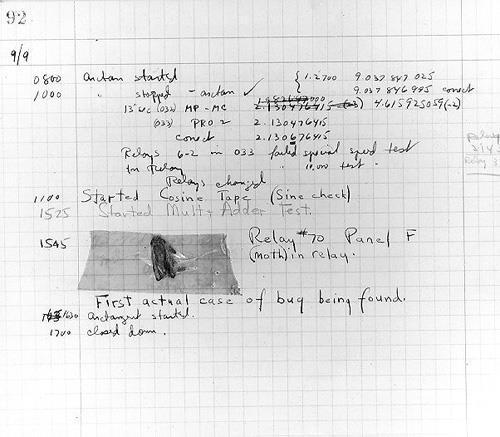 92
9/9
0800 Antan started { 1.2700 9.037 847 025
1000 " stopped - antan ✓ 9.037 846 995 correct
13"uc (032) MP - MC 2.130476415 4.615925059(-2)
(033) PRO 2 2.130476415
correct 2.130676415
Relays 6-2 in 033 failed special speed test
in Relay " 10.000 test.
Relays changed
1100 Started Cosine Tape (Sine check)
1525 Started Mult+Adder Test.
1545 Relay #70 Panel F
(Moth) in relay.
First actual case of bug being found.
1630 Antangent started.
1700 closed down.